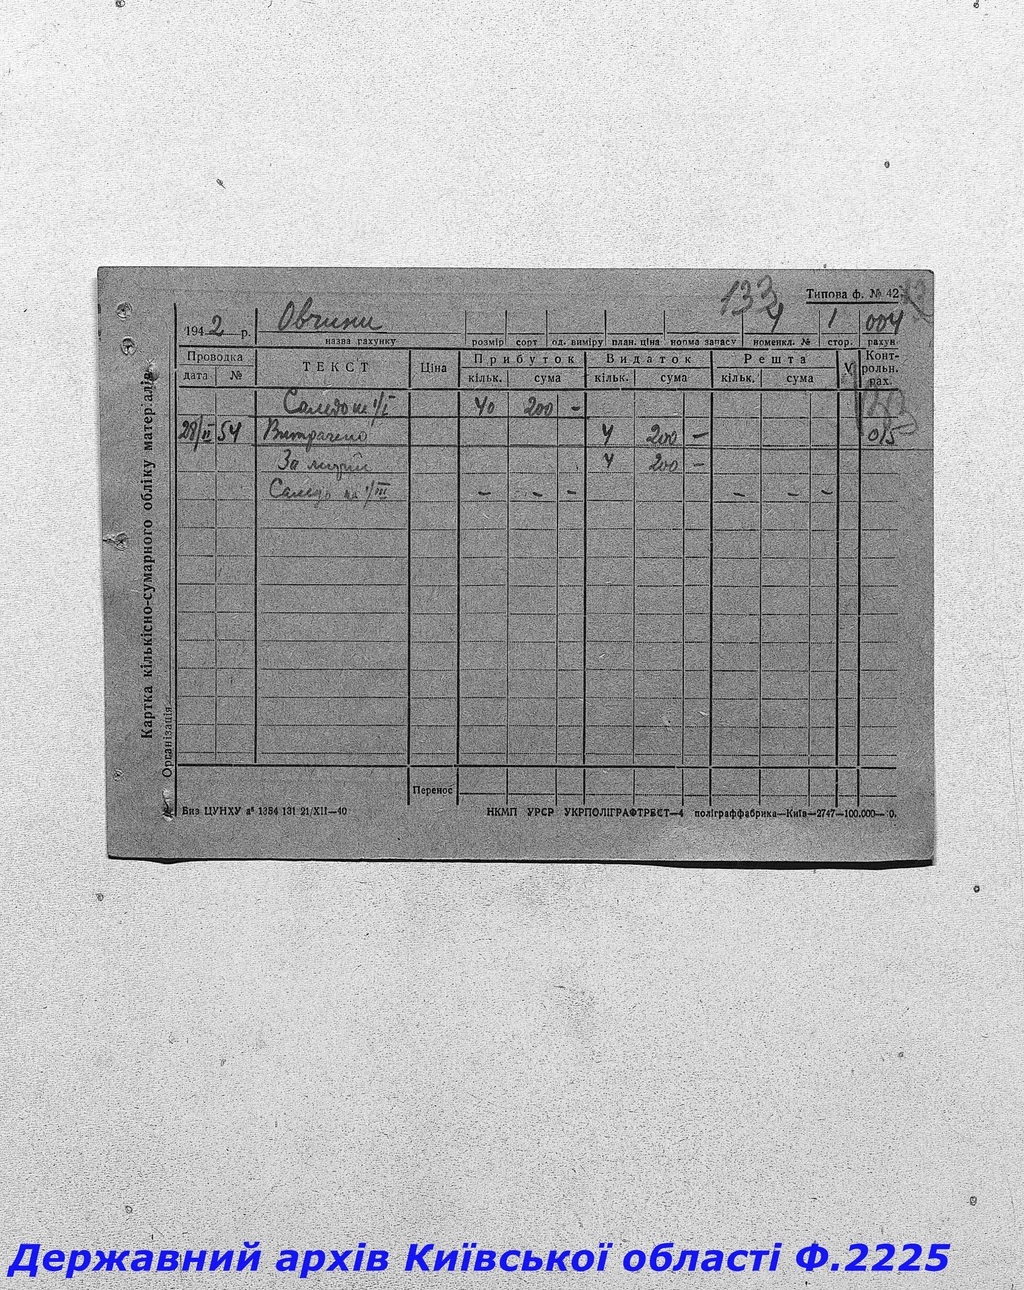 133
Типова ф. № 42
1942 р. Овчини 4 1 004
назва рахунку розмір сорт од. виміру план. ціна норма запасу номенкл. № стор. рахун
Проводка ТЕКСТ Ціна Прибуток Видаток Решта V Контрольн. рах.
дата № кільк. сума кільк. сума кільк. сума
Сальдо на 1/I 40 200 -
28/II 54 Витрачено 4 200 - 015
За 4 200 -
Сальдо на 1/III - - - - - -
Перенос
Картка кількісно-сумарного обліку матеріалів
Організація
Виз ЦУНХУ 1354 131 21/XII—40
НКМП УРСР УКРПОЛІГРАФТРЕСТ—4 поліграффабрика—Київ—2747—100.000—
Державний архів Київської області Ф.2225